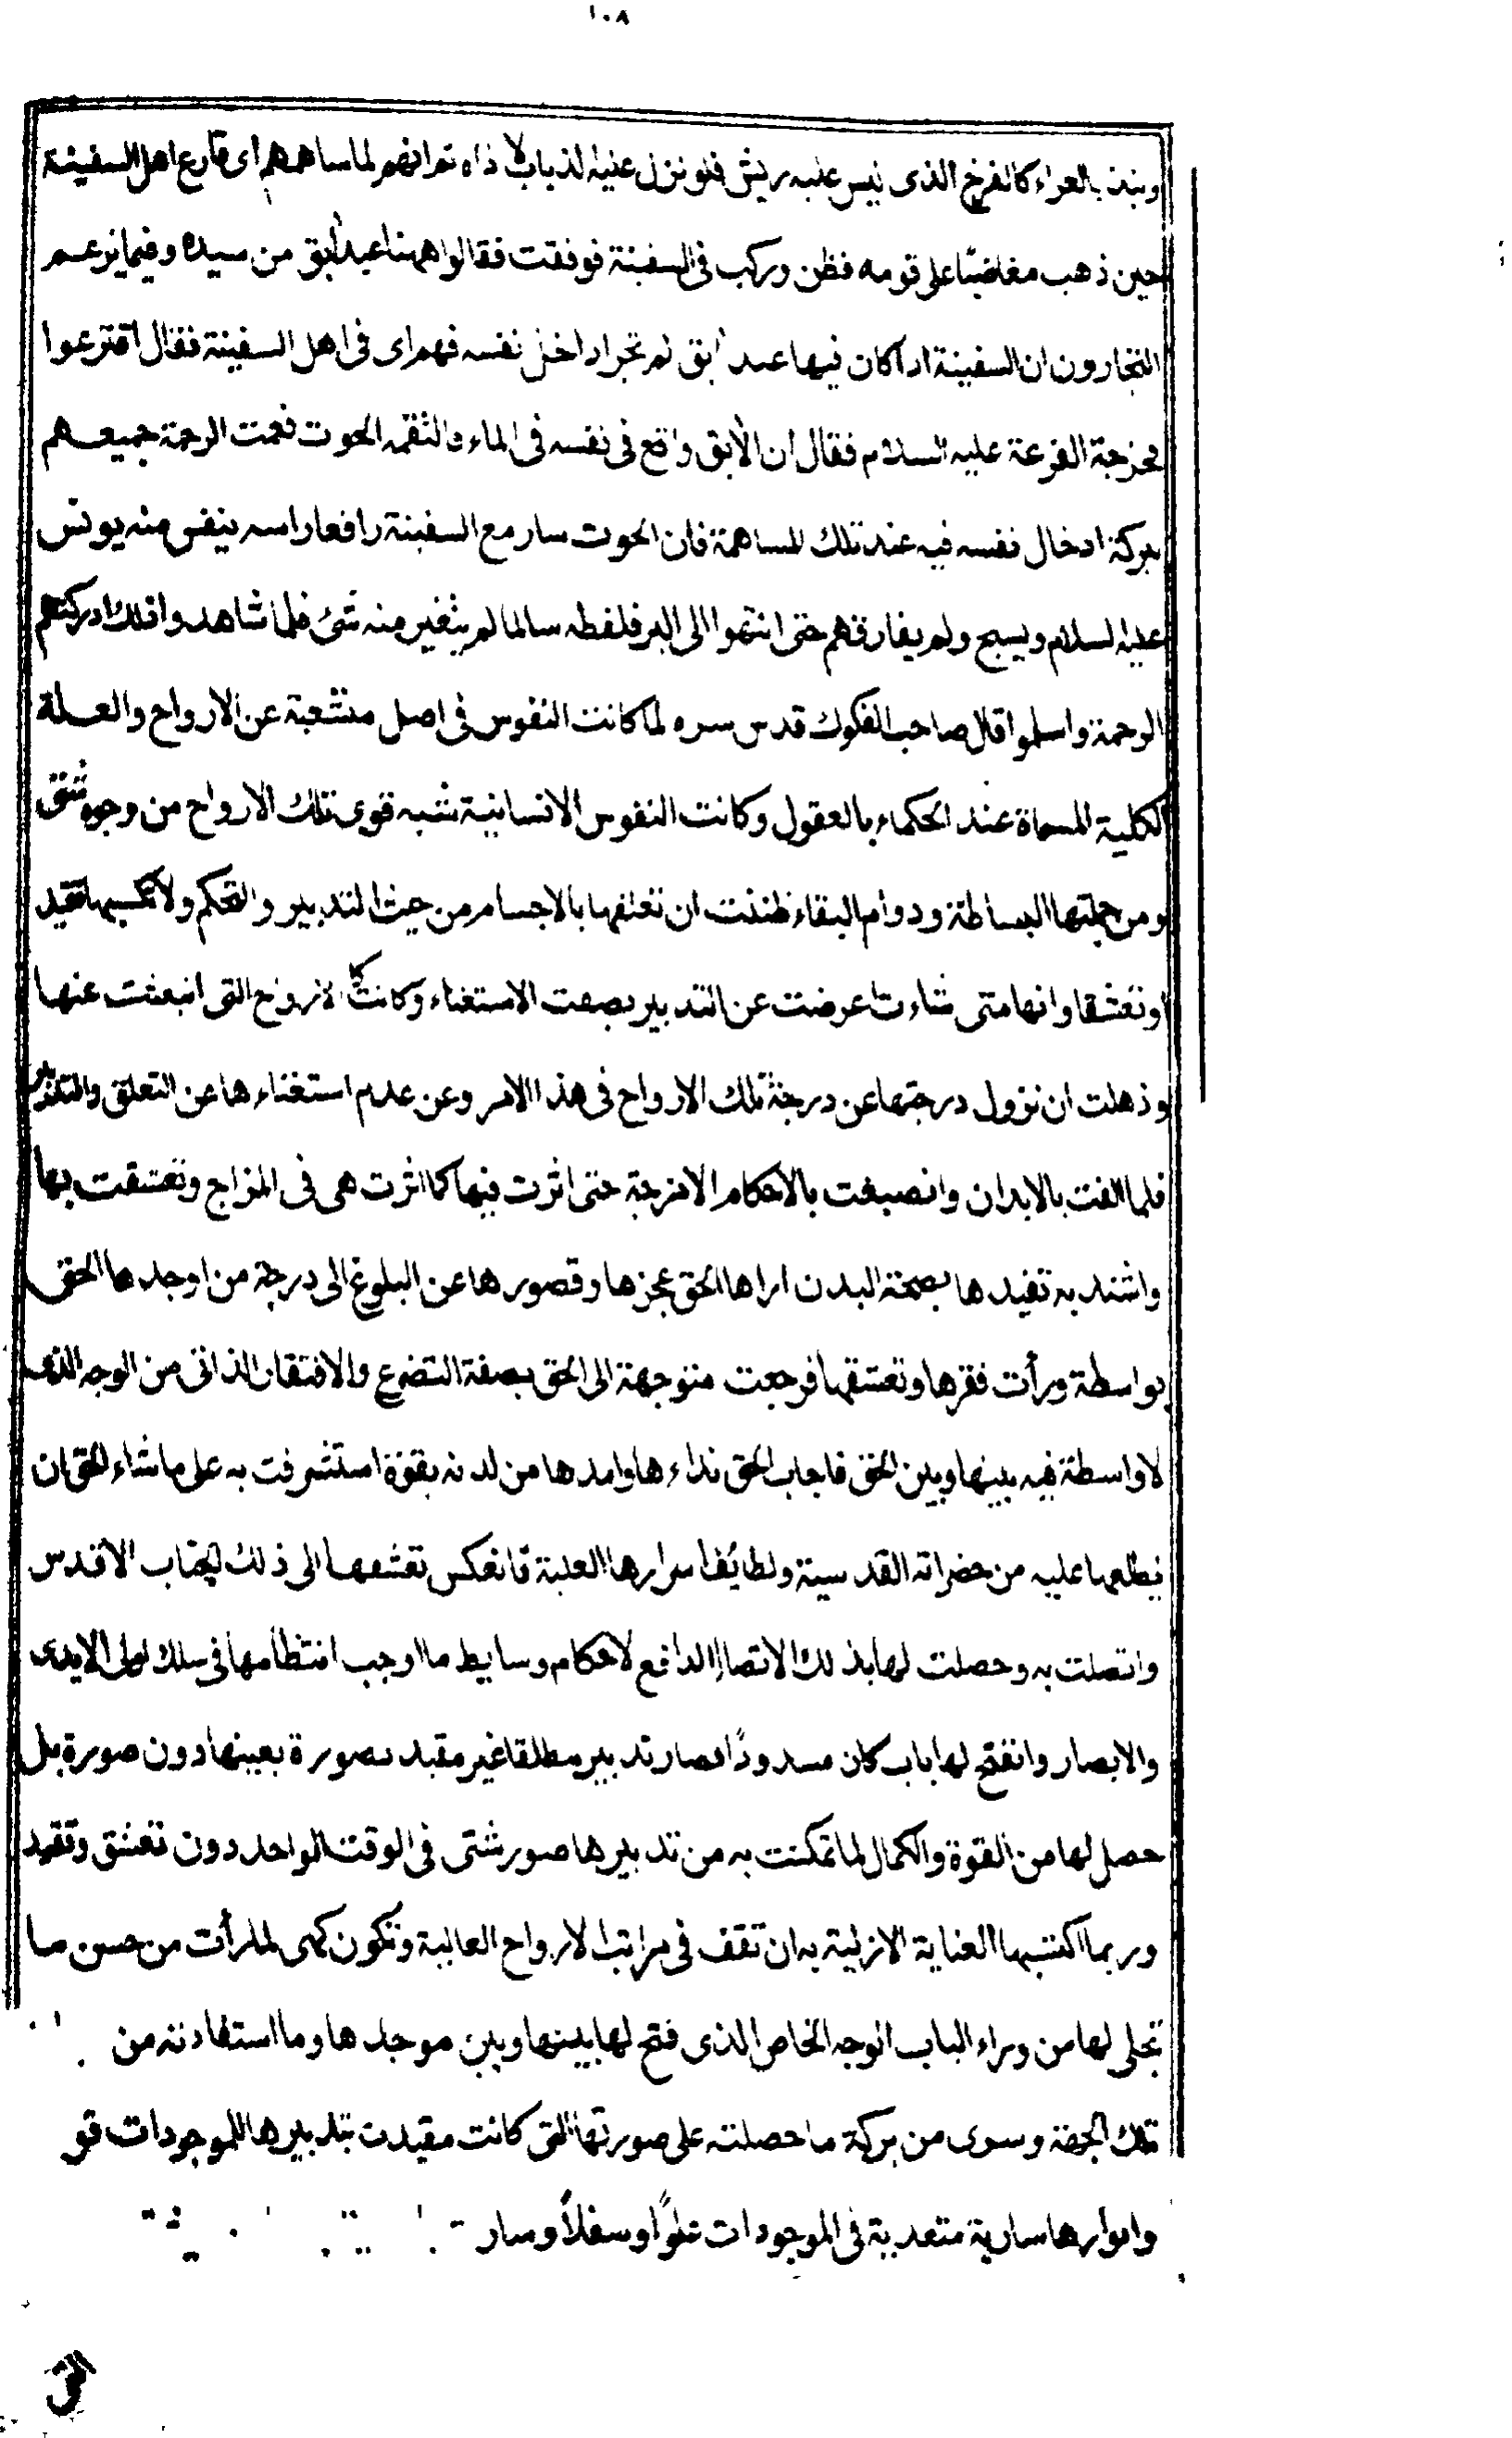 ١٠٨
ونبذ بالعراء كالفرخ الذى ليس عليه ريش فلو نزل عليه الذباب لاذاه ثم انهم لما ساهمهم اى قارع اهل السفينة
حين ذهب مغاضبًا على قومه فظن وركب فى السفينة فوقفت فقالوا ههنا عبد أبق من سيده وفيما يزعم
النجارون ان السفينة اذا كان فيها عبد ابق لم تجر ادخل نفسه فهم اى فى اهل السفينة فقال اقترعوا
فخرجة القرعة عليه السلام فقال ان الابق واقع فى نفسه فى الماء فالتقمه الحوت فعمت الرحمة جميعهم
ببركة ادخال نفسه فيه عند تلك المساهمة فان الحوت سار مع السفينة رافعا راسه ينفس منه يونس
عليه السلام ويسبح ولم يفارقهم حتى انتهوا الى البر فلفظه سالما لم يتغير منه شئ فلما شاهدوا ذلك ادركتهم
الرحمة واسلموا قال صاحب الفكوك قدس سره لما كانت النفوس فى اصل منشعبة عن الارواح والعلة
الكلية المسماة عند الحكماء بالعقول وكانت النفوس الانسانية شبه قوى تلك الارواح من وجوه شتى
ومن جملتها البساطة ودوام البقاء ظننت ان تعلقها بالاجسام من حيث التدبير والتحكم ولا تكسبها تقيد
او تعشقا وانها متى شاءت اعرضت عن التدبير بصفت الاستغناء وكانت كالارواح التى انبعثت عنها
وذهلت ان نزول درجتها عن درجة تلك الارواح فى هذا الامر وعن عدم استغناءها عن التعلق والتدبير
فلما الفت بالابدان وانصبغت بالاحكام الامزجة حتى اثرت فيها كما اثرت هى فى المزاج وتعشقت بها
واشتد به تقيدها بصحة البدن اراها الحق عجزها وقصورها عن البلوغ الى درجة من اوجدها الحق
بواسطة ورأت فقرها وتعشقها فرجعت متوجهة الى الحق بصفة التضرع والافتقار الذاتى من الوجه الذى
لا واسطة فيه بينها وبين الحق فاجاب الحق نداءها وامدها من لدنه بقوة استشرفت به على ما شاء الحق ان
يطلعها عليه من حضراته القدسية ولطائف اسرارها العلية فانعكس تعشقها الى ذلك الجناب الاقدس
واتصلت به وحصلت لها بذلك الاتصال الدافع لاحكام وسايط ما اوجب انتظامها فى سلك اولى الايدى
والابصار وانفتح لها باب كان مسدودًا فصار تدبير مطلقا غير مقيد بصورة بعينها دون صورة بل
حصل لها من القوة والكمال لما تمكنت به من تدبيرها صور شتى فى الوقت الواحد دون تعشق وتقيد
وربما اكتسبها العناية الازلية به ان تقف فى مراتب الارواح العالية وتكون كهى لما رأت من حسن ما
تجلى لها من وراء الباب الوجه الخاص الذى فتح لها بينها وبين موجدها وما استفادته من
تلك الجهة وسرى من بركة ما حصلته على صورتها التى كانت مقيدت بتدبيرها للموجودات قو
وانوارها سارية متعدية فى الموجودات علوًا وسفلاً وسار